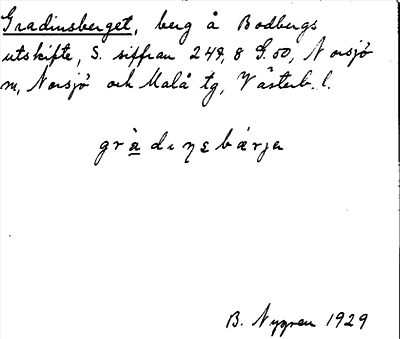 Gradinsberget, berg å Bodbergs
utskifte, S. siffran 249, 8 G.50, Norsjö
m, Norsjö och Malå tg, Västerb. l.
gràdıŋsbærjə
B. Nygren 1929